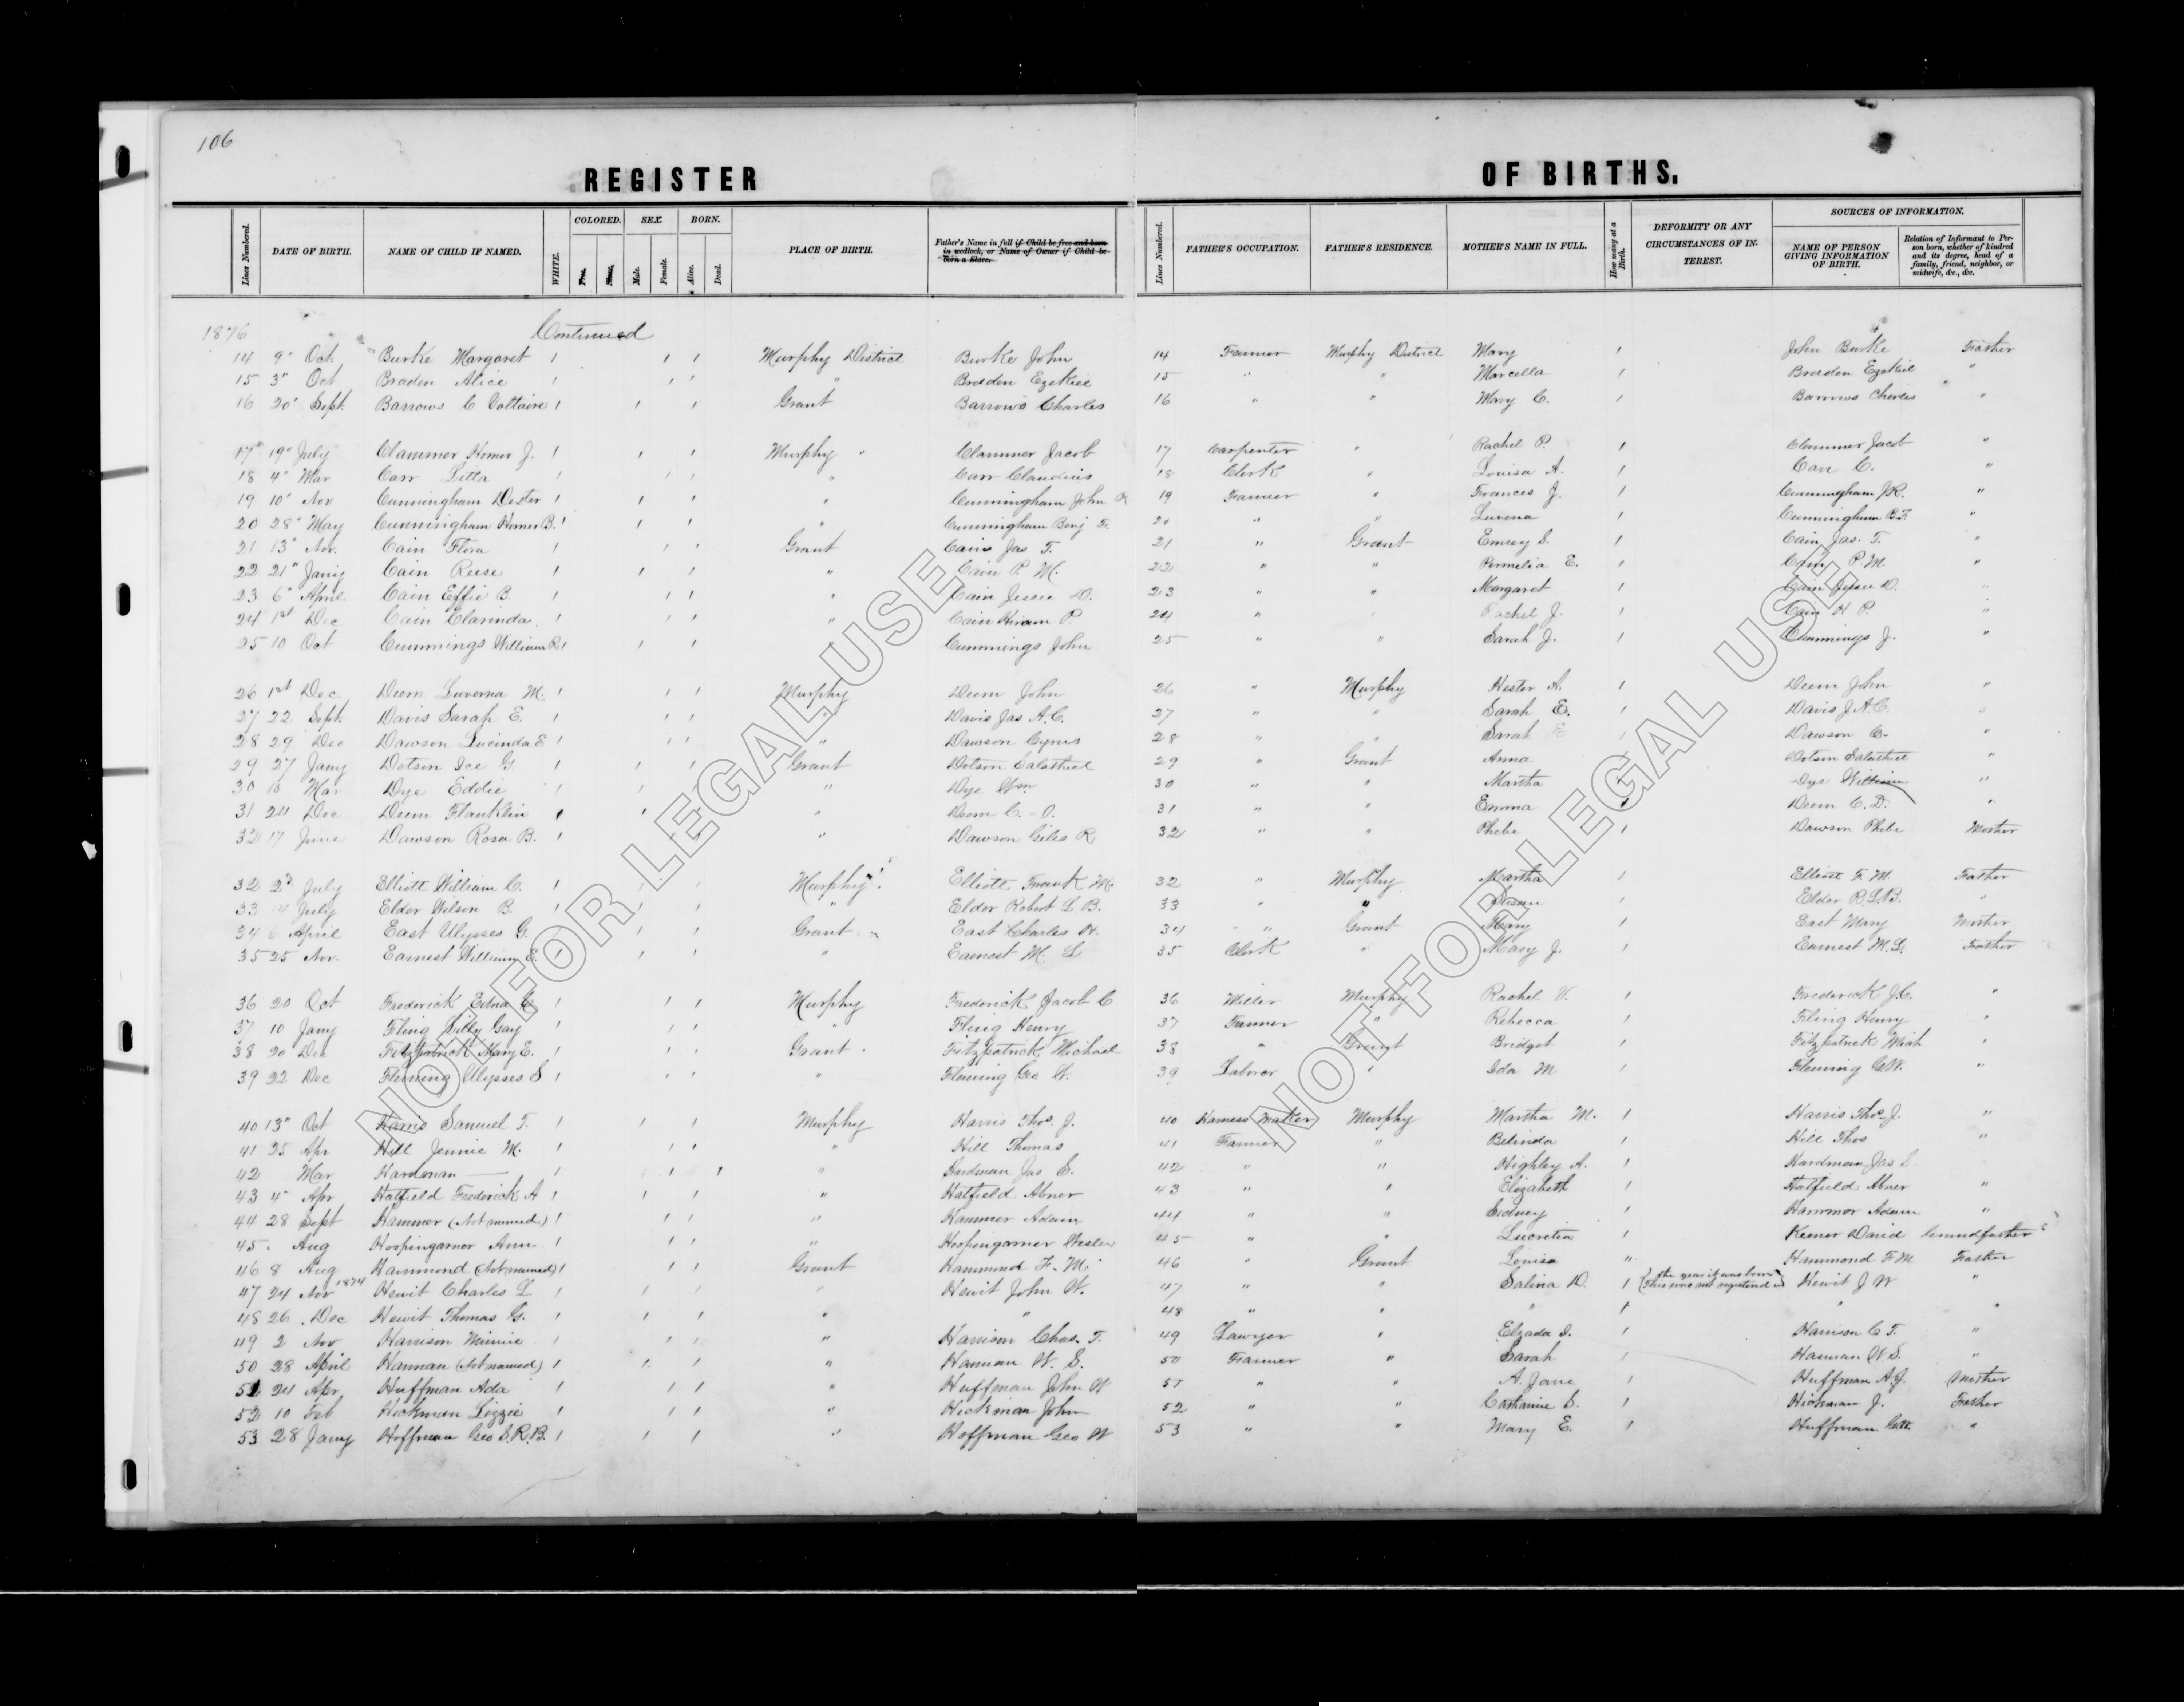 106
REGISTER OF BIRTHS.
Lines Numbered. DATE OF BIRTH. NAME OF CHILD IF NAMED. WHITE. COLORED. Free. Slave. SEX. Male. Female. BORN. Alive. Dead. PLACE OF BIRTH. Father's Name in full if Child be free and born in wedlock, or Name of Owner if Child be born a Slave. Lines Numbered. FATHER'S OCCUPATION. FATHER'S RESIDENCE. MOTHER'S NAME IN FULL. How many at a Birth. DEFORMITY OR ANY CIRCUMSTANCES OF INTEREST. SOURCES OF INFORMATION. NAME OF PERSON GIVING INFORMATION OF BIRTH. Relation of Informant to Person born, whether of kindred and its degree, head of a family, friend, neighbor, or midwife, &c., &c.
1876 Continued
14 9" Oct. Burke Margaret 1 1 1 Murphy District Burke John 14 Farmer Murphy District Mary 1 John Burke Father
15 3" Oct Braden Alice 1 1 1 " Braden Ezekiel 15 " " Marcella 1 Braden Ezekiel "
16 20" Sept. Barrows C Voltaire 1 1 1 Grant Barrows Charles 16 " " Mary C. 1 Barrows Charles "
17 19" July Clammer Homer J. 1 1 1 Murphy " Clammer Jacob 17 Carpenter " Rachel P. 1 Clammer Jacob "
18 4" Mar Carr Letta 1 1 1 " Carr Claudius 18 Clerk " Louisa A. 1 Carr C. "
19 10" Nov Cunningham Dexter 1 1 1 " Cunningham John R 19 Farmer " Frances J. 1 Cunningham J.R. "
20 28" May Cunningham Homer B. 1 1 1 " Cunningham Benj F. 20 " " Luvena 1 Cunningham B.F. "
21 13" Nov. Cain Flora 1 1 1 Grant Cain Jas T. 21 " Grant S. 1 Cain Jas. T. "
22 21" Jany Cain Reese 1 1 1 " Cain P. M. 22 " " Permelia E. 1 Cain P.M. "
23 6" April Cain Effie B. 1 1 1 " Cain Jessie D. 23 " " Margaret 1 Cain Jesse D. "
24 1st Dec Cain Clarinda 1 1 1 " Cain Hiram P 24 " " Rachel J. 1 Cain H P. "
25 10 Oct Cummings William R 1 1 1 " Cummings John 25 " " Sarah J. 1 Cummings J. "
26 1st Dec. Deem Luverna M. 1 1 1 Murphy Deem John 26 " Murphy Hester A. 1 Deem John "
27 22 Sept. Davis Sarah E. 1 1 1 " Davis Jas A.C. 27 " " Sarah E. 1 Davis J.A.C. "
28 29 Dec Dawson Lucinda E 1 1 1 " Dawson Cyrus 28 " " Sarah E 1 Dawson C. "
29 27 Jany Dotson Ice G. 1 1 1 Grant Dotson Salathiel 29 " Grant Anna 1 Dotson Salathiel "
30 10 Mar Dye Eddie 1 1 1 " Dye Wm 30 " " Martha 1 Dye William "
31 24 Dec Deem Franklin 1 1 1 " Deem C. D. 31 " " Emma 1 Deem C. D. "
32 17 June Dawson Rosa B. 1 " Dawson Giles R 32 " " Phebe 1 Dawson Phebe Mother
32 2d July Elliott William C. 1 1 1 Murphy Elliott Frank M. 32 " Murphy Martha 1 Elliott F. M. Father
33 July Elder Wilson B. 1 1 1 " Elder Robert L B. 33 " " Susan 1 Elder R.L.B. "
34 6 April East Ulysses G. 1 1 1 Grant East Charles H. 34 " Grant Mary 1 East Mary Mother
35 25 Nov. Earnest William E. 1 1 1 " Earnest M. L 35 Clerk " Mary J. 1 Earnest M. L. Father
36 20 Oct Frederick Edna 1 1 1 Murphy Frederick Jacob C 36 Miller Murphy Rachel V. 1 Frederick J.C. "
37 10 Jany Fling Lilly Gay 1 1 1 " Fling Henry 37 Farmer " Rebecca 1 Fling Henry "
38 20 Dec Fitzpatrick Mary E. 1 1 1 Grant Fitzpatrick Michael 38 " Grant Bridget 1 Fitzpatrick Mich "
39 22 Dec Fleming Ulysses S 1 1 1 " Fleming Geo W. 39 Laborer " Ida M 1 Fleming G.W. "
40 13" Oct Harris Samuel T. 1 1 1 Murphy Harris Thos. J. 40 Harness Maker Murphy Martha M. 1 Harris Thos. J. "
41 25 Apr Hill Jennie M. 1 1 1 " Hill Thomas 41 Farmer " Belinda 1 Hill Thos "
42 Mar Hardman 1 1 1 " Hardman Jas S. 42 " " Highley A. 1 Hardman Jas S.
43 4" Apr Hatfield Frederick A 1 1 1 " Hatfield Abner 43 " " Elizabeth 1 Hatfield Abner "
44 28 Sept Hammer (Not named) 1 1 1 " Hammer Adam 44 " " Sidney 1 Hammer Adam "
45 Aug Hoopingarner Ann 1 1 1 " Hoopengarner Wesley 45 " " Lucretia 1 Keener David Grandfather
46 8 Aug Hammond (Not named) 1 1 1 Grant Hammond F. M. 46 " Grant Louisa " Hammond F M Father
47 24 Nov 1874 Hewit Charles L. 1 1 1 " Hewit John W. 47 " " Salina D. 1 (This was not registered in the year it was born) Hewit J W "
48 26 Dec Hewit Thomas G. 1 1 1 " " 48 " " " 1 " "
49 2 Nov Harrison Minnie 1 1 1 " Harrison Chas. T. 49 Lawyer " Elzada D. 1 Harrison C T. "
50 28 April Hannan (Not named) 1 1 1 " Hannan W. S. 50 Farmer " Sarah 1 Hannan W S. "
51 24 Apr Huffman Ada 1 1 1 " Huffman John W 51 " " A. Jane 1 Huffman A.J. Mother
52 10 Feb Hickman Lizzie 1 1 1 " Hickman John 52 " " Catharine S. 1 Hickman J. Father
53 28 Jany Hoffman Geo S.R.B. 1 1 1 " Hoffman Geo W 53 " " Mary E. 1 Huffman "
NOT FOR LEGAL USE
NOT FOR LEGAL USE